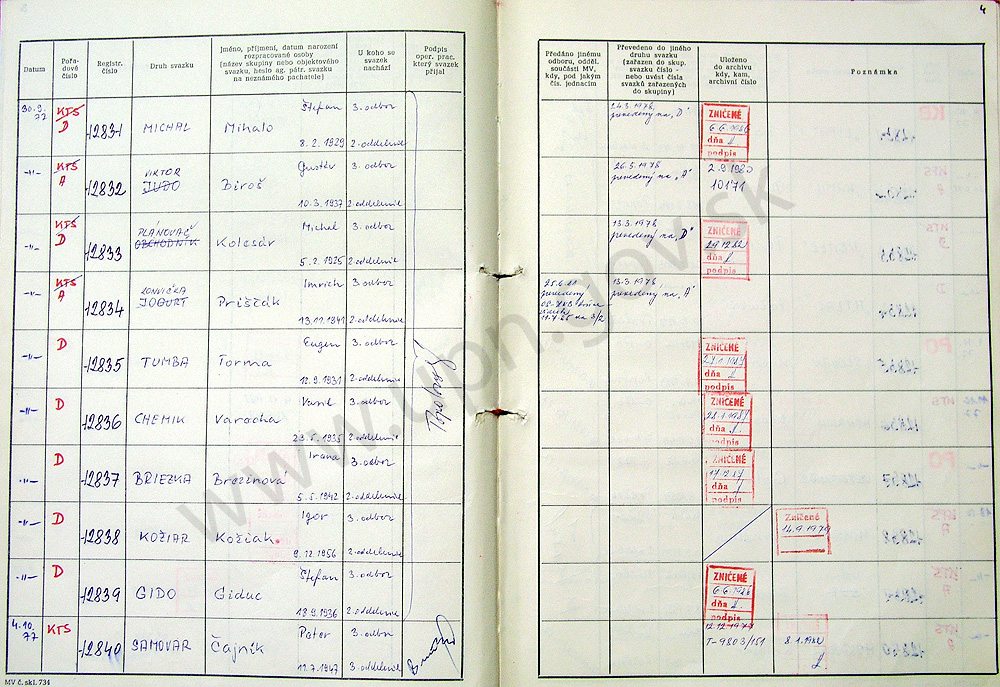 4
Datum
Pořadové číslo
Registr. číslo
Druh svazku
Jméno, příjmení, datum narození rozpracované osoby (název skupiny nebo objektového svazku, heslo ag. pátr. svazku na neznámého pachatele)
U koho se svazek nachází
Podpis oper. prac. který svazek přijal
Předáno jinému odboru, odděl. součásti MV, kdy, pod jakým čís. jednacím
Převedeno do jiného druhu svazku (zařazen do skup. svazku číslo - nebo uvést čísla svazků zařazených do skupiny)
Uloženo do archivu kdy, kam, archivní číslo
Poznámka
30.9. 77 KTS D 12831 MICHAL Štefan Mihalo 8.2.1929 3. odbor 2. oddelenie
24.3.1978, prevedený na „D"
ZNIČENÉ 6.6.1986 dňa podpis
-"- KTS A 12832 VIKTOR JUDO Gustáv Biroš 10.3.1937 3. odbor 2. oddelenie
26.5.1978 prevedený na „A"
2.9.1980 10171
-"- KTS D 12833 PLÁNOVAČ OBCHODNÍK Michal Kolesár 5.2.1925 3. odbor 2. oddelenie
13.3.1978, prevedený na „D"
ZNIČENÉ dňa podpis
-"- KTS A 12834 JOGURT Imrich Priščák 13.11.1941 3. odbor 2. oddelenie
prevedený
13.3.1978, prevedený na „A"
-"- D 12835 TUMBA Eugen Torma 12.9.1931 3. odbor 2. oddelenie
ZNIČENÉ dňa podpis
-"- D 12836 CHEMIK Vasil Varocha 23.5.1935 3. odbor 2. oddelenie
ZNIČENÉ dňa podpis
-"- D 12837 BRIEZKA Irena Brezinová 5.5.1942 3. odbor 2. oddelenie
ZNIČENÉ dňa podpis
-"- D 12838 KOŽIAR Igor Kožiak 9.12.1956 3. odbor 2. oddelenie
Zničené 14.9.1979
-"- D 12839 GIDO Štefan Giduc 18.9.1936 3. odbor 2. oddelenie
ZNIČENÉ 6.6.1986 dňa podpis
4.10. 77 KTS 12840 SAMOVAR Peter Čajník 11.7.1947 3. odbor 2. oddelenie
12.12.1977 T-9803/151
MV č. skl. 734
www.upn.gov.sk